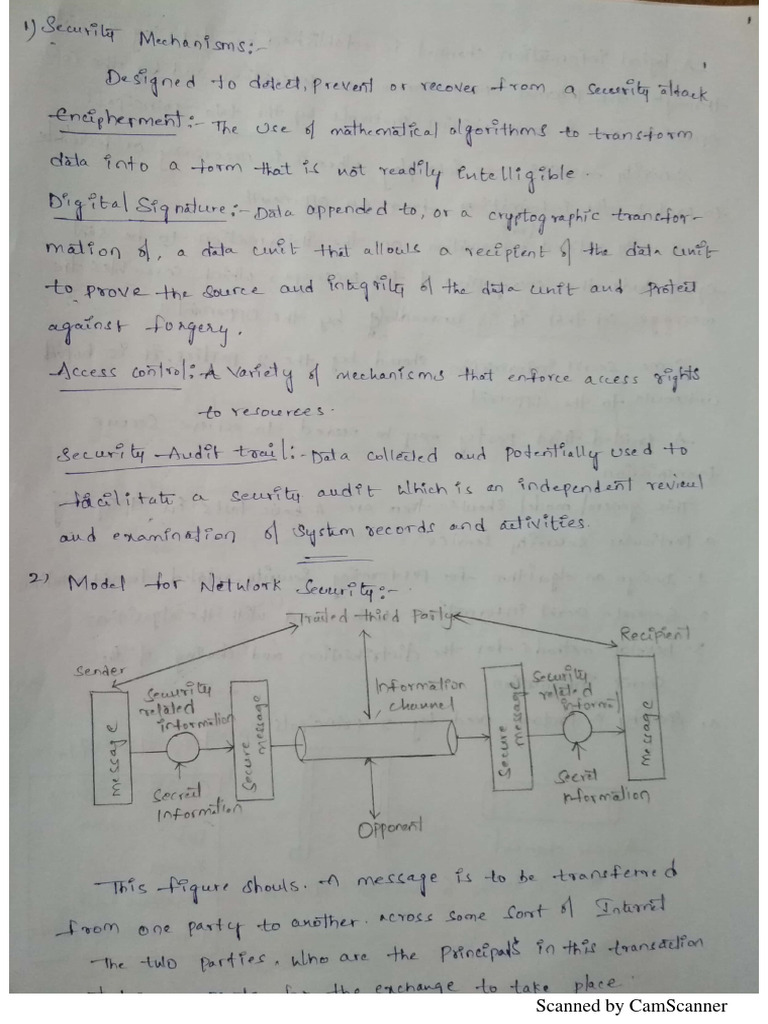 1) Security Mechanisms:-
Designed to detect, prevent or recover from a security attack
Encipherment:- The use of mathematical algorithms to transform
data into a form that is not readily intelligible.
Digital Signature:- Data appended to, or a cryptographic transfor-
mation of, a data unit that allows a recipient of the data unit
to prove the source and integrity of the data unit and protect
against forgery.
Access control:- A variety of mechanisms that enforce access rights
to resources.
Security Audit trail:- Data collected and potentially used to
facilitate a security audit which is an independent review
and examination of system records and activities.
2) Model for Network Security:-
Trusted third party
Recipient
Sender
Security
related
information
Information
channel
Security
related
informat
message
Secure
message
Secure
message
message
Secret
Information
Secret
nformation
Opponent
This figure shows. A message is to be transferred
from one party to another. across some sort of Internet
The two parties, who are the Principals in this transaction
for the exchange to take place.
Scanned by CamScanner